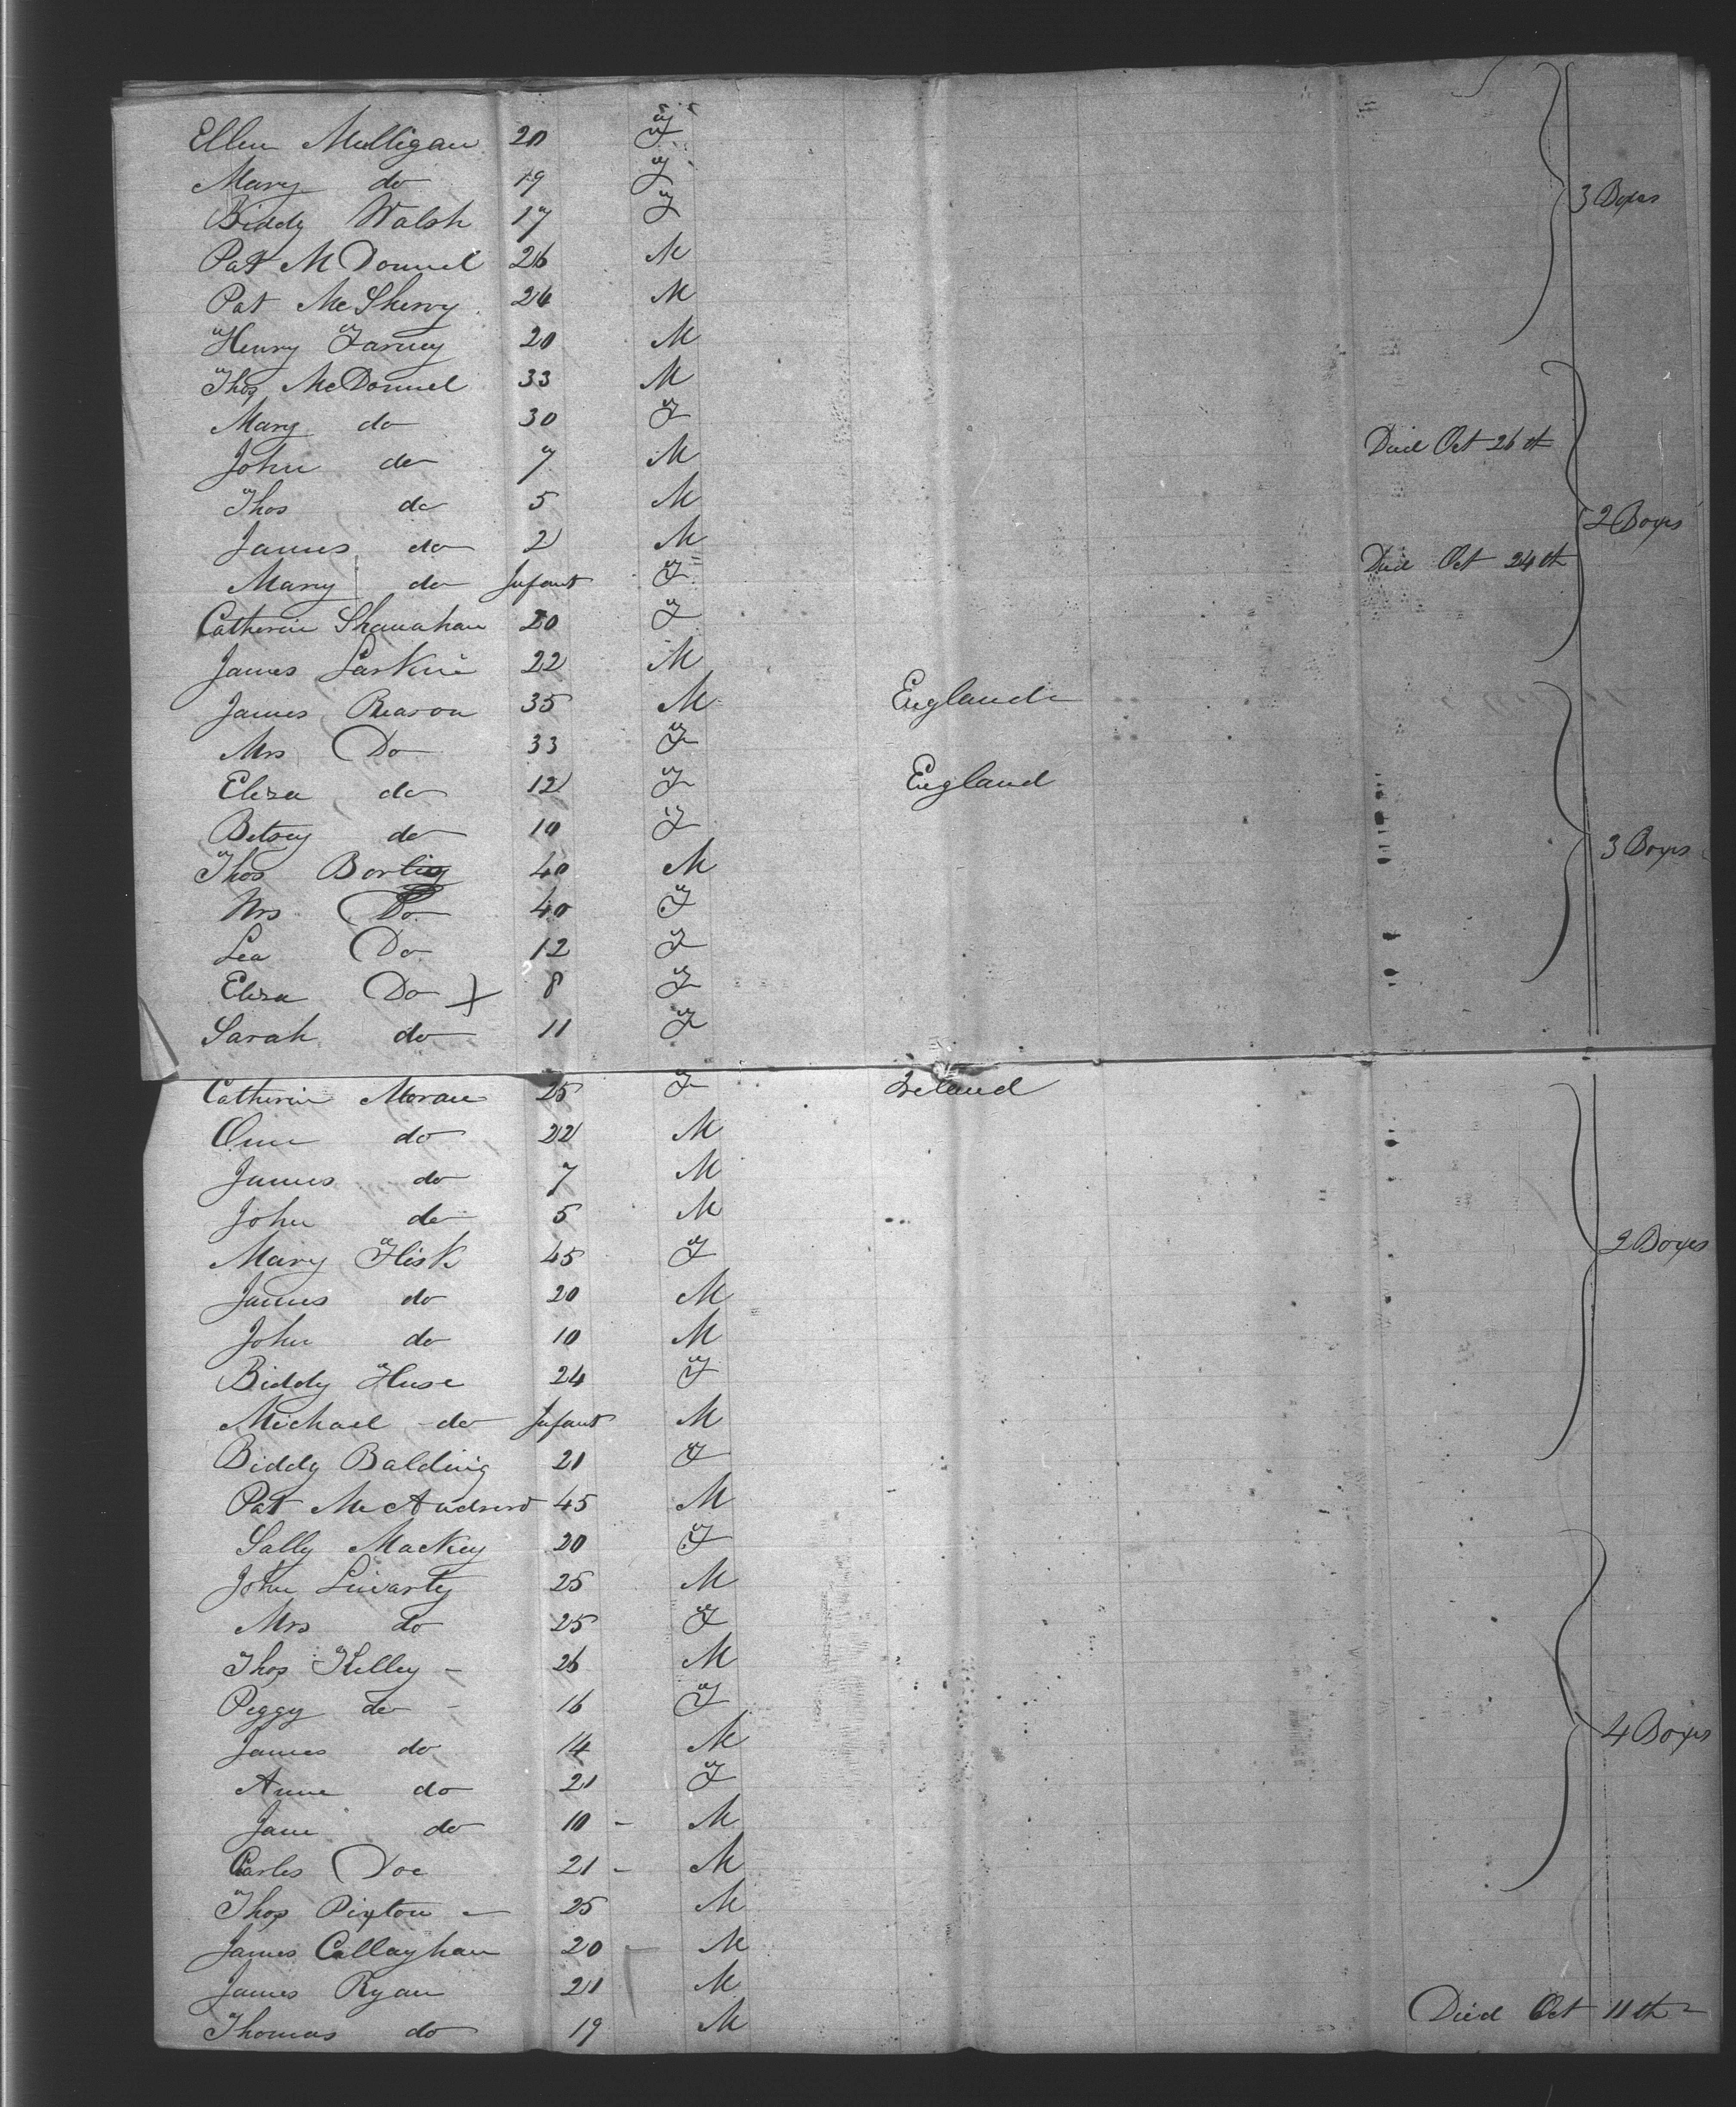 Ellen Mulligan 20 F
Mary do 19 F
Biddy Walsh 17 F 3 Boxes
Pat McDonnel 26 M
Pat McSherry 24 M
Henry Farney 20 M
Thos McDonnel 33 M
Mary do 30 F Died Oct 26th
John do 7 M
Thos do 5 M 2 Boxes
James do 2 M
Mary do Infant F Died Oct 24th
Catherin Shanahan 20 F
James Larkin 22 M
James Reason 35 M England
Mrs Do 33 F
Eliza do 12 F England
Betsey do 10 F
Thos 40 M 3 Boxes
Mrs Do 40 F
Lea Do 12 F
Eliza Do 8 F
Sarah do 11 F
Catherin Moran 25 F Ireland
do 22 M
James do 7 M
John do 5 M
Mary Flisk 45 F 2 Boxes
James do 20 M
John do 10 M
Biddy Huse 24 F
Michael do Infant M
Biddy Balding 21 F
Pat McAndrew 45 M
Sally Mackey 20 F
John 25 M
Mrs do 25 F
Thos Kelley 26 M
Peggy do 16 F
James do 14 M 4 Boxes
Anne do 21 F
Jane do 10 M
Carles Doe 21 M
Thos Pixton 25 M
James Callaghan 20 M
James Ryan 21 M
Thomas do 19 M Died Oct 11th